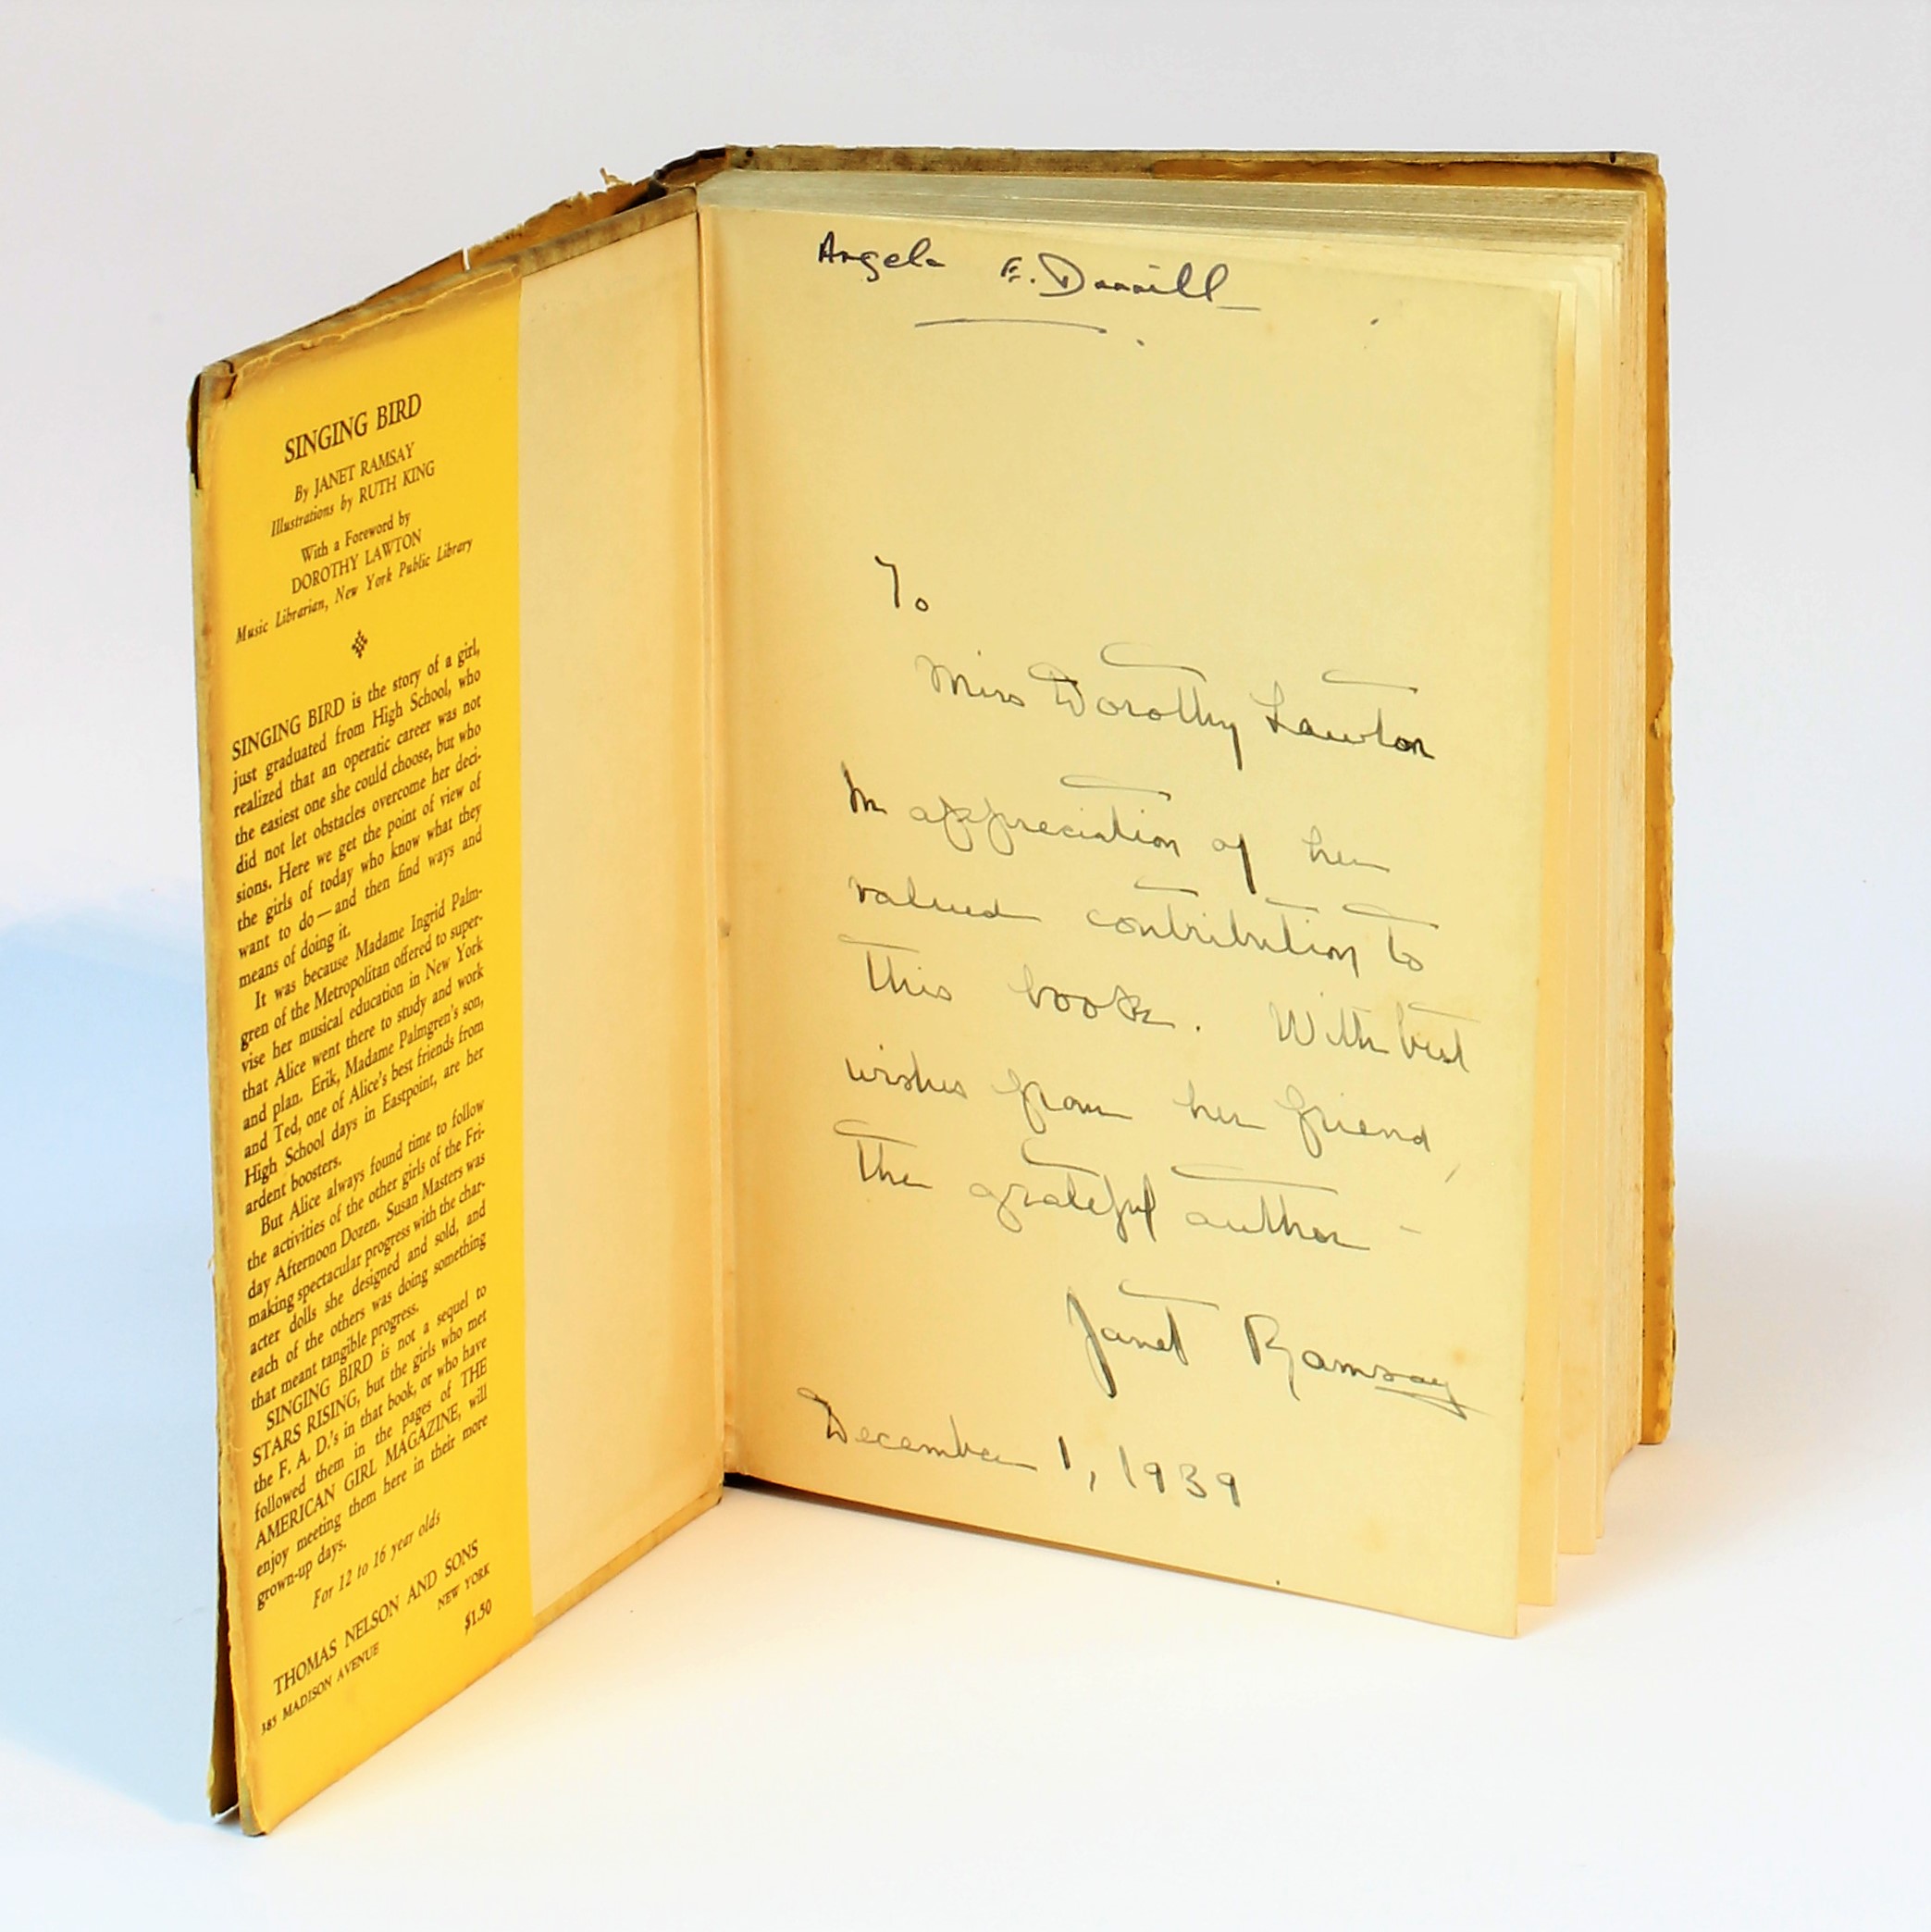 SINGING BIRD
By JANET RAMSAY
Illustrations by RUTH KING
With a Foreword by
DOROTHY LAWTON
Music Librarian, New York Public Library
SINGING BIRD is the story of a girl,
just graduated from High School, who
realized that an operatic career was not
the easiest one she could choose, but who
did not let obstacles overcome her deci-
sions. Here we get the point of view of
the girls of today who know what they
want to do—and then find ways and
means of doing it.
It was because Madame Ingrid Palm-
gren of the Metropolitan offered to super-
vise her musical education in New York
that Alice went there to study and work
and plan. Erik, Madame Palmgren's son,
and Ted, one of Alice's best friends from
High School days in Eastpoint, are her
ardent boosters.
But Alice always found time to follow
the activities of the other girls of the Fri-
day Afternoon Dozen. Susan Masters was
making spectacular progress with the char-
acter dolls she designed and sold, and
each of the others was doing something
that meant tangible progress.
SINGING BIRD is not a sequel to
STARS RISING, but the girls who met
the F. A. D.'s in that book, or who have
followed them in the pages of THE
AMERICAN GIRL MAGAZINE, will
enjoy meeting them here in their more
grown-up days.
For 12 to 16 year olds
THOMAS NELSON AND SONS
385 MADISON AVENUE NEW YORK
$1.50
Angela E.
To
Miss Dorothy Lawton
In appreciation of her
valued contribution to
this book. With best
wishes from her friend,
the grateful author –
Janet Ramsay
December 1, 1939